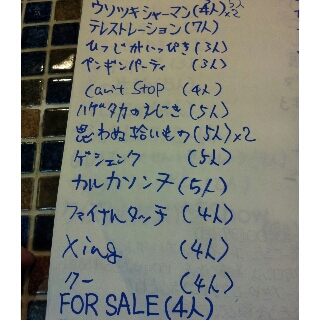 ウソツキシャーマン(4人)×2
テレストレーション(7人)
ひつじがいっぴき(3人)
ペンギンパーティ(3人)
Can't STOP (4人)
ハゲタカのえじき(5人)
思わぬ拾いもの(5人)×2
ゲシェンク(5人)
カルカソンヌ(5人)
ファイナルタッチ(4人)
Xing (4人)
クー (4人)
FOR SALE(4人)